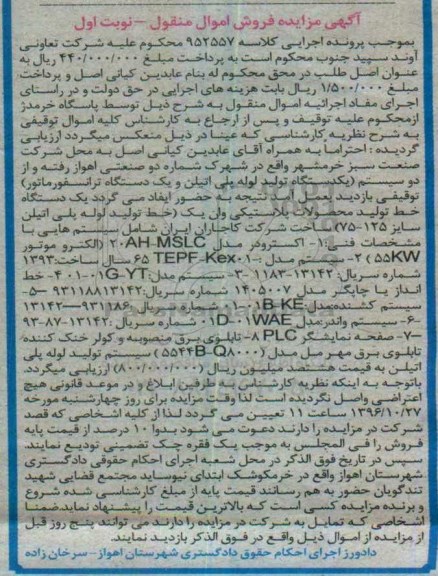 آگهی مزایده فروش اموال منقول – نوبت اول
بموجب پرونده اجرایی کلاسه ۹۵۲۵۵۷ محکوم علیه شرکت تعاونی
آوند سپید جنوب محکوم است به پرداخت مبلغ ۴۴۰/۰۰۰/۰۰۰ ریال به
عنوان اصل طلب در محق محکوم له بنام عابدین کیانی اصل و پرداخت
مبلغ ۱/۵۰۰/۰۰۰ ریال بابت هزینه های اجرایی در حق دولت و در راستای
اجرای مفاد اجرائیه اموال منقول به شرح ذیل توسط پاسگاه خرمدژ
ازمحکوم علیه توقیف و پس از ارجاع به کارشناس کلیه اموال توقیفی
به شرح نظریه کارشناسی که عینا در ذیل منعکس میگردد ارزیابی
گردیده : احتراما به همراه آقای عابدین کیانی اصل به محل شرکت
صنعت سبز خرمشهر واقع در شهرک شماره دو صنعتی اهواز رفته و از
دو سیستم (یکدستگاه تولید لوله پلی اتیلن و یک دستگاه ترانسفورماتور)
توقیفی بازدید بعمل آمد نتیجه به حضور ایفاد می گردد یک دستگاه
خط تولید محصولات پلاستیکی وان یک (خط تولید لوله پلی اتیلن
سایز ۱۲۵-۷۵) ساخت شرکت کاجاران ایران شامل سیستم هایی با
مشخصات فنی ۱- اکترودر مدل AH-MSLC ۲۰ (الکترو موتور
۵۵KW) ۲- سیستم مدل TEPF-Kex۰۱- ۶۵ سال ساخت:۱۳۹۳
شماره سریال: ۱۳۱۴۲-۱۱۸۳ ۳- سیستم مدل:G-YT۰۱-۴۰۱- خط
انداز یا جاپگر مدل ۱۴۰۵۰۰۷ شماره سریال:۹۳۱۱۸۸۱۳۱۴۲ ۵-
سیستم کشنده:مدل B-KE۰۱- شماره سریال:۹۳۱۱۸۶-۱۳۱۴۲
۶- سیستم واندر:مدل D-۰۱WAE۰۱ شماره سریال:۱۳۱۴۲-۸۷-۹۳
۷- صفحه نمایشگر PLC ۸- تابلوی برق منصوبه و کولر خنک کننده
تابلوی برق مهر مل مدل (B-Q۸۰۰۰ ۵۵۴۴) سیستم تولید لوله پلی
اتیلن به قیمت هشتصد میلیون ریال (۸۰۰/۰۰۰/۰۰۰) ارزیابی میگردد.
باتوجه به اینکه نظریه کارشناس به طرفین ابلاغ و در موعد قانونی هیچ
اعتراضی واصل نگردیده است لذا وقت مزایده برای روز چهارشنبه مورخه
۱۳۹۶/۱۰/۲۷ ساعت ۱۱ تعیین می گردد لذا از کلیه اشخاصی که قصد
شرکت در مزایده را دارند دعوت می شود بدوا ۱۰ درصد از قیمت پایه
فروش را فی المجلس به موجب یک فقره چک تضمینی تودیع نمایند.
سپس در تاریخ فوق الذکر در محل شعبه اجرای احکام حقوقی دادگستری
شهرستان اهواز واقع در خرمکوشک ابتدای نیوساید مجتمع قضایی شهید
تندگویان حضور به هم رسانند قیمت پایه از مبلغ کارشناسی شده شروع
و برنده مزایده کسی است که بالاترین قیمت را پیشنهاد نماید.ضمنا
اشخاصی که تمایل به شرکت در مزایده را دارند می توانند پنج روز قبل
از مزایده از اموال ذیل واقع در فوق الذکر بازدید نمایند.
دادورز اجرای احکام حقوق دادگستری شهرستان اهواز- سرخان زاده